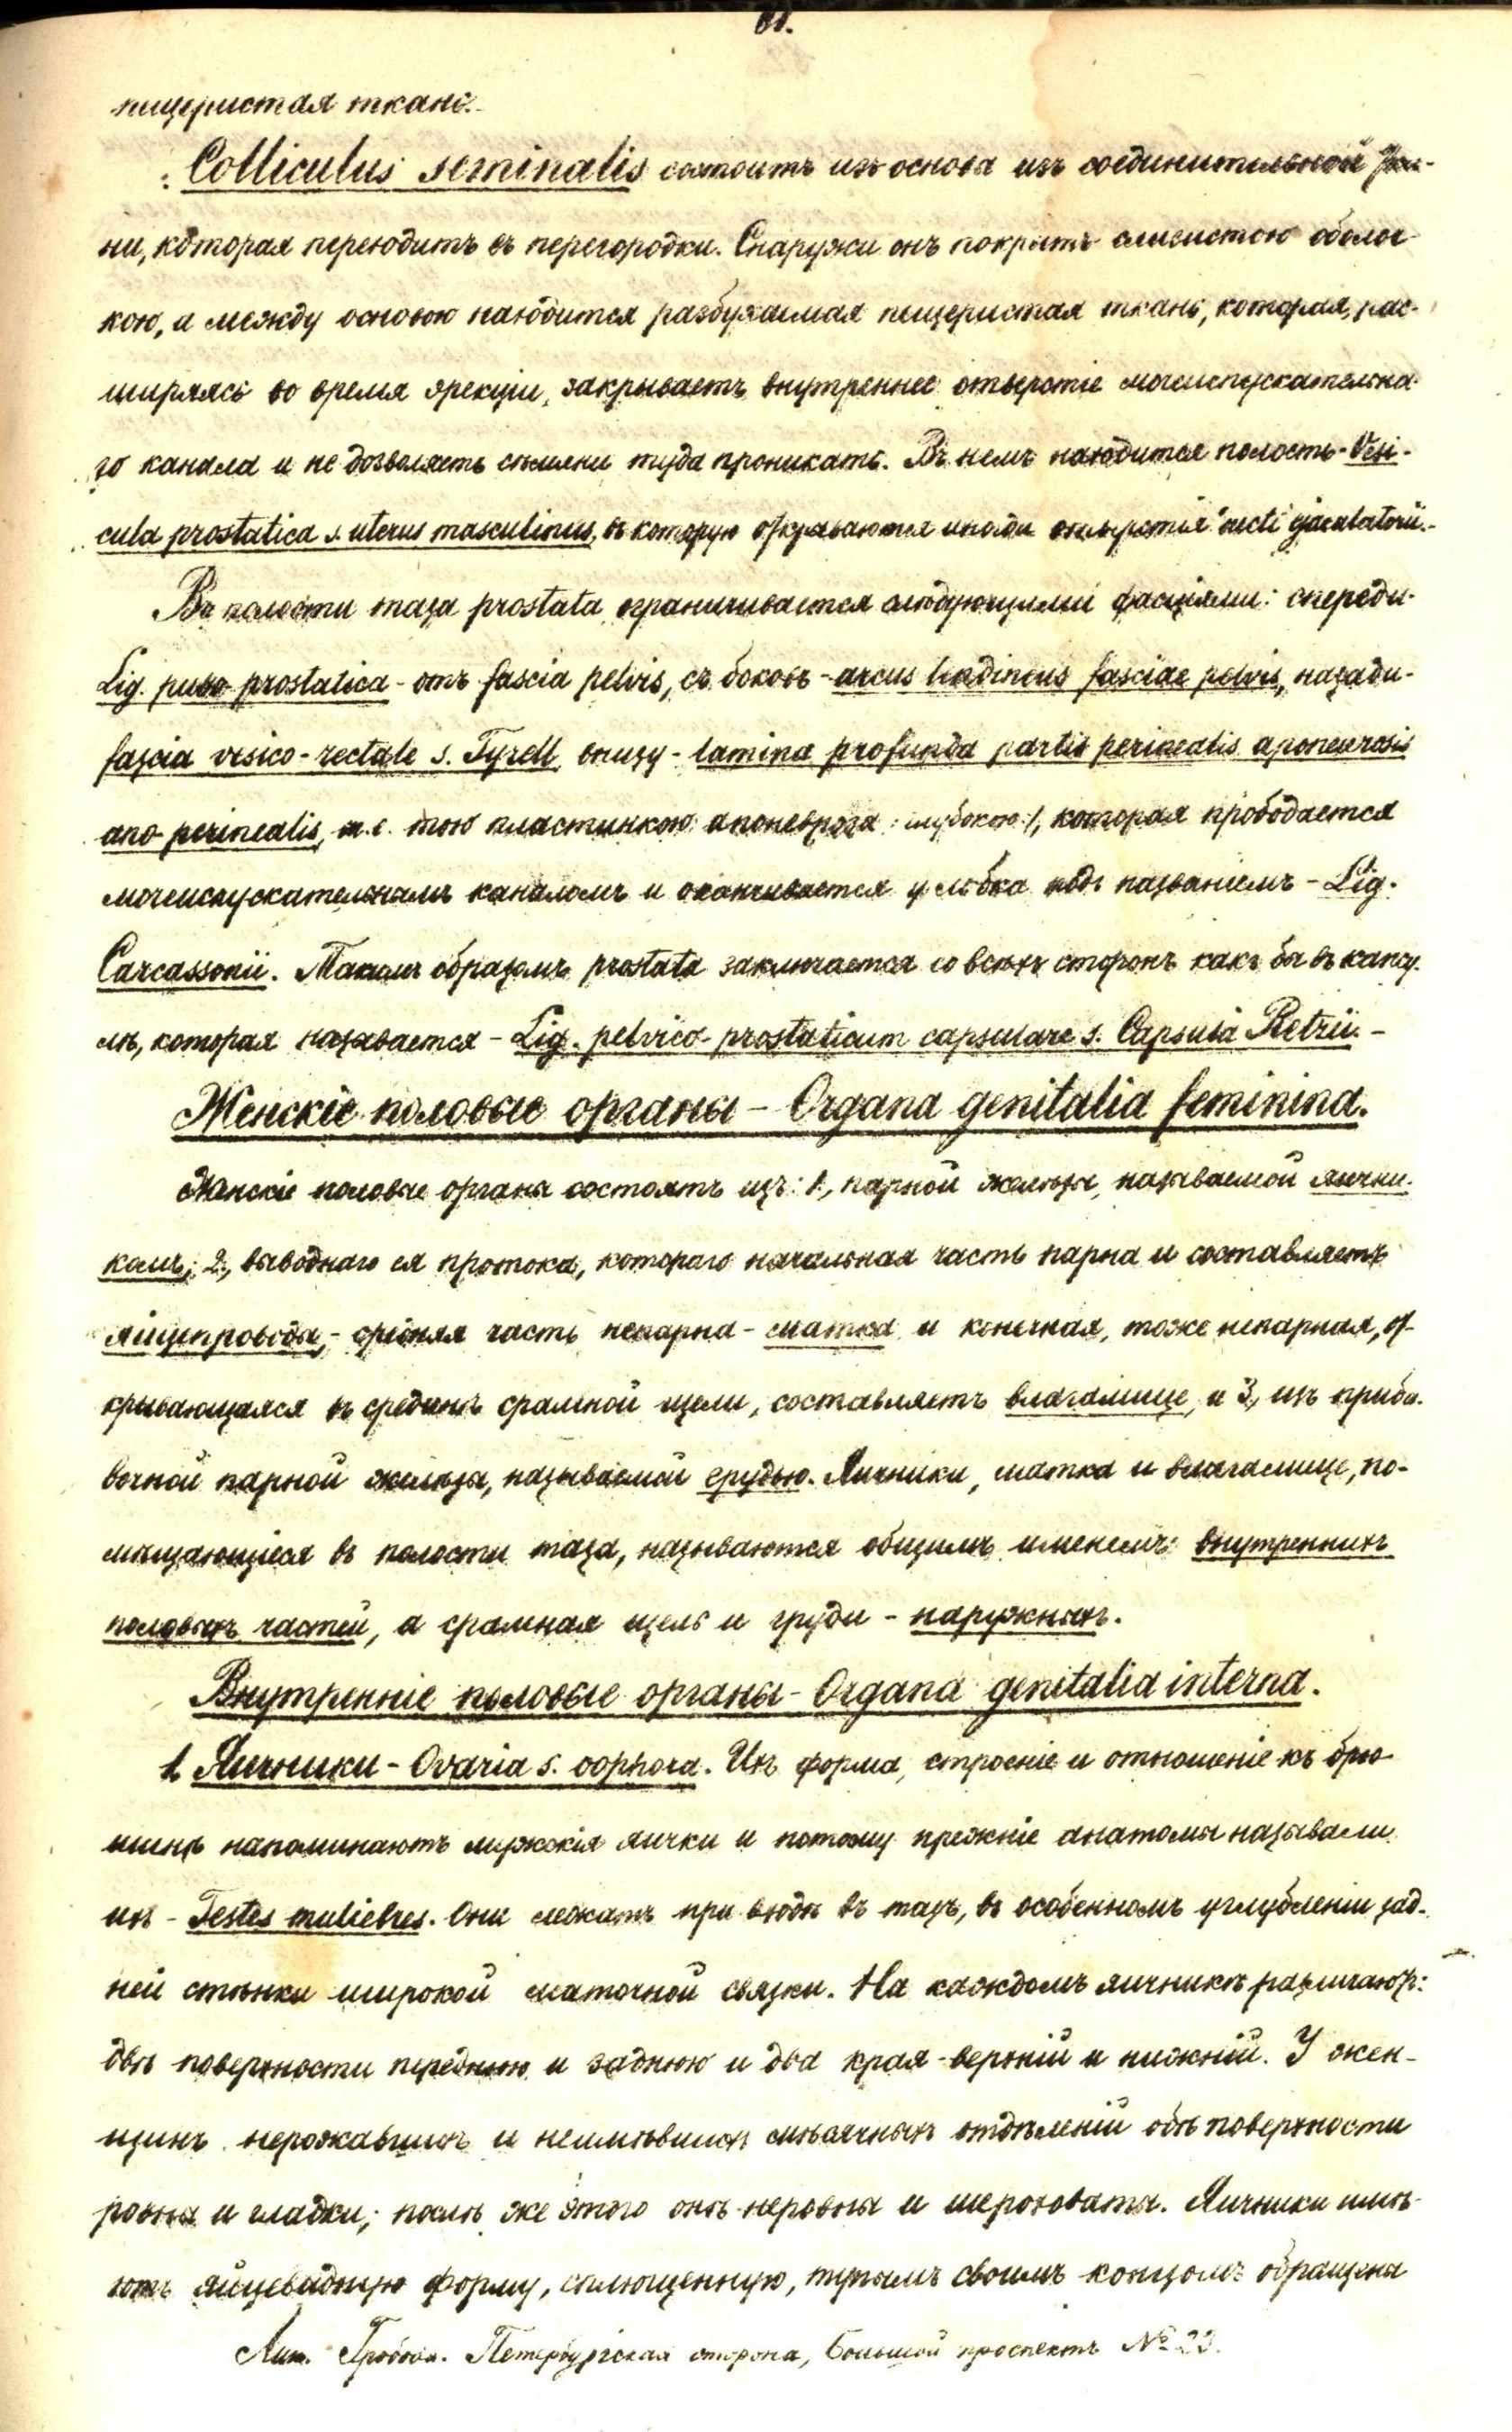 61.
пещеристая ткань.-
Colliculus seminalis состоитъ изъ основа изъ соединительной тка-
ни, которая переходитъ въ перегородки. Снаружи онъ покрытъ слизистою оболоч-
кою, а между основою находится разбухаемая пещеристая ткань, которая, рас-
ширяясь во время эрекціи, закрываетъ внутреннее отверстіе мочеиспускательна-
го канала и не дозволяетъ сѣмяни туда проникать. Въ немъ находится полость - Vesi-
cula prostatica s. uterus masculinus, въ которую открываются иногда отверстія ducti ejaculatorii.-
Въ полости таза prostata ограничивается слѣдующими фасціями: спереди-
Lig. pubo prostatica - отъ fascia pelvis, съ боковъ - arcus tendineus fasciae pelvis, назади-
fascia vesico-rectale s. Tyrell, внизу - lamina profunda partis perinealis aponeurosis
ano-perinealis, т.е. тою пластинкою апоневроза /:глубокою:/, которая прободается
мочеиспускательнымъ каналомъ и оканчивается у лобка подъ названіемъ - Lig.
Carcassonii. Такимъ образомъ prostata заключается со всѣхъ сторонъ какъ бы въ капсу-
лѣ, которая называется - Lig. pelvico-prostaticum capsulare s. Capsula Retzii.-
Женскіе половые органы - Organa genitalia feminina.
Женскіе половые органы состоятъ изъ: 1, парной железы, называемой яични-
комъ; 2, выводнаго ея протока, котораго начальная часть парна и составляетъ
яйцепроводы, - средняя часть непарна - матка и конечная, тоже непарная, от-
крывающаяся въ срединѣ срамной щели, составляетъ влагалище, и 3, изъ приба-
вочной парной железы, называемой грудью. Яичники, матка и влагалище, по-
мѣщающіеся въ полости таза, называются общимъ именемъ: внутреннихъ
половыхъ частей, а срамная щель и груди - наружныхъ.
Внутренніе половые органы - Organa genitalia interna.
1. Яичники - Ovaria s. oophora. Ихъ форма, строеніе и отношеніе къ брю-
шинѣ напоминаютъ мужскія яички и потому прежніе анатомы называли
ихъ - Testes muliebres. Они лежатъ при входѣ въ тазъ, въ особенномъ углубленіи зад-
ней стѣнки широкой маточной связки. На каждомъ яичникѣ различаютъ:
двѣ поверхности переднюю и заднюю и два края - верхній и нижній. У жен-
щинъ нерожавшихъ и неимѣвшихъ мѣсячныхъ отдѣленій обѣ поверхности
ровны и гладки; послѣ же этого онѣ неровны и шероховаты. Яичники имѣ-
ютъ яйцевидную форму, сплющенную, тупымъ своимъ концомъ обращены
Лит. Гробова. Петербургская сторона, Большой проспектъ № 22.